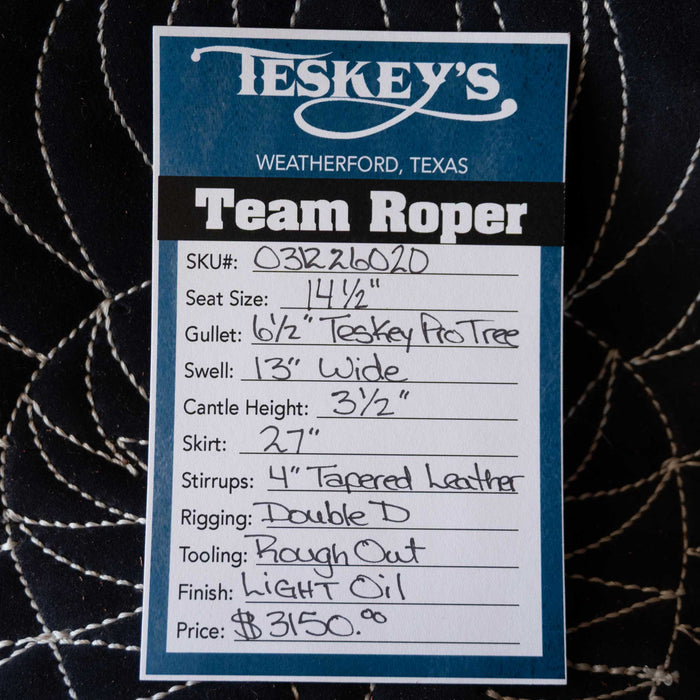 TESKEY'S
WEATHERFORD, TEXAS
Team Roper
SKU#: 031226020
Seat Size: 14 1/2"
Gullet: 6 1/2" Teskey Pro Tree
Swell: 13" Wide
Cantle Height: 3 1/2"
Skirt: 27"
Stirrups: 4" Tapered Leather
Rigging: Double D
Tooling: Rough Out
Finish: LIGHT Oil
Price: $3150.00